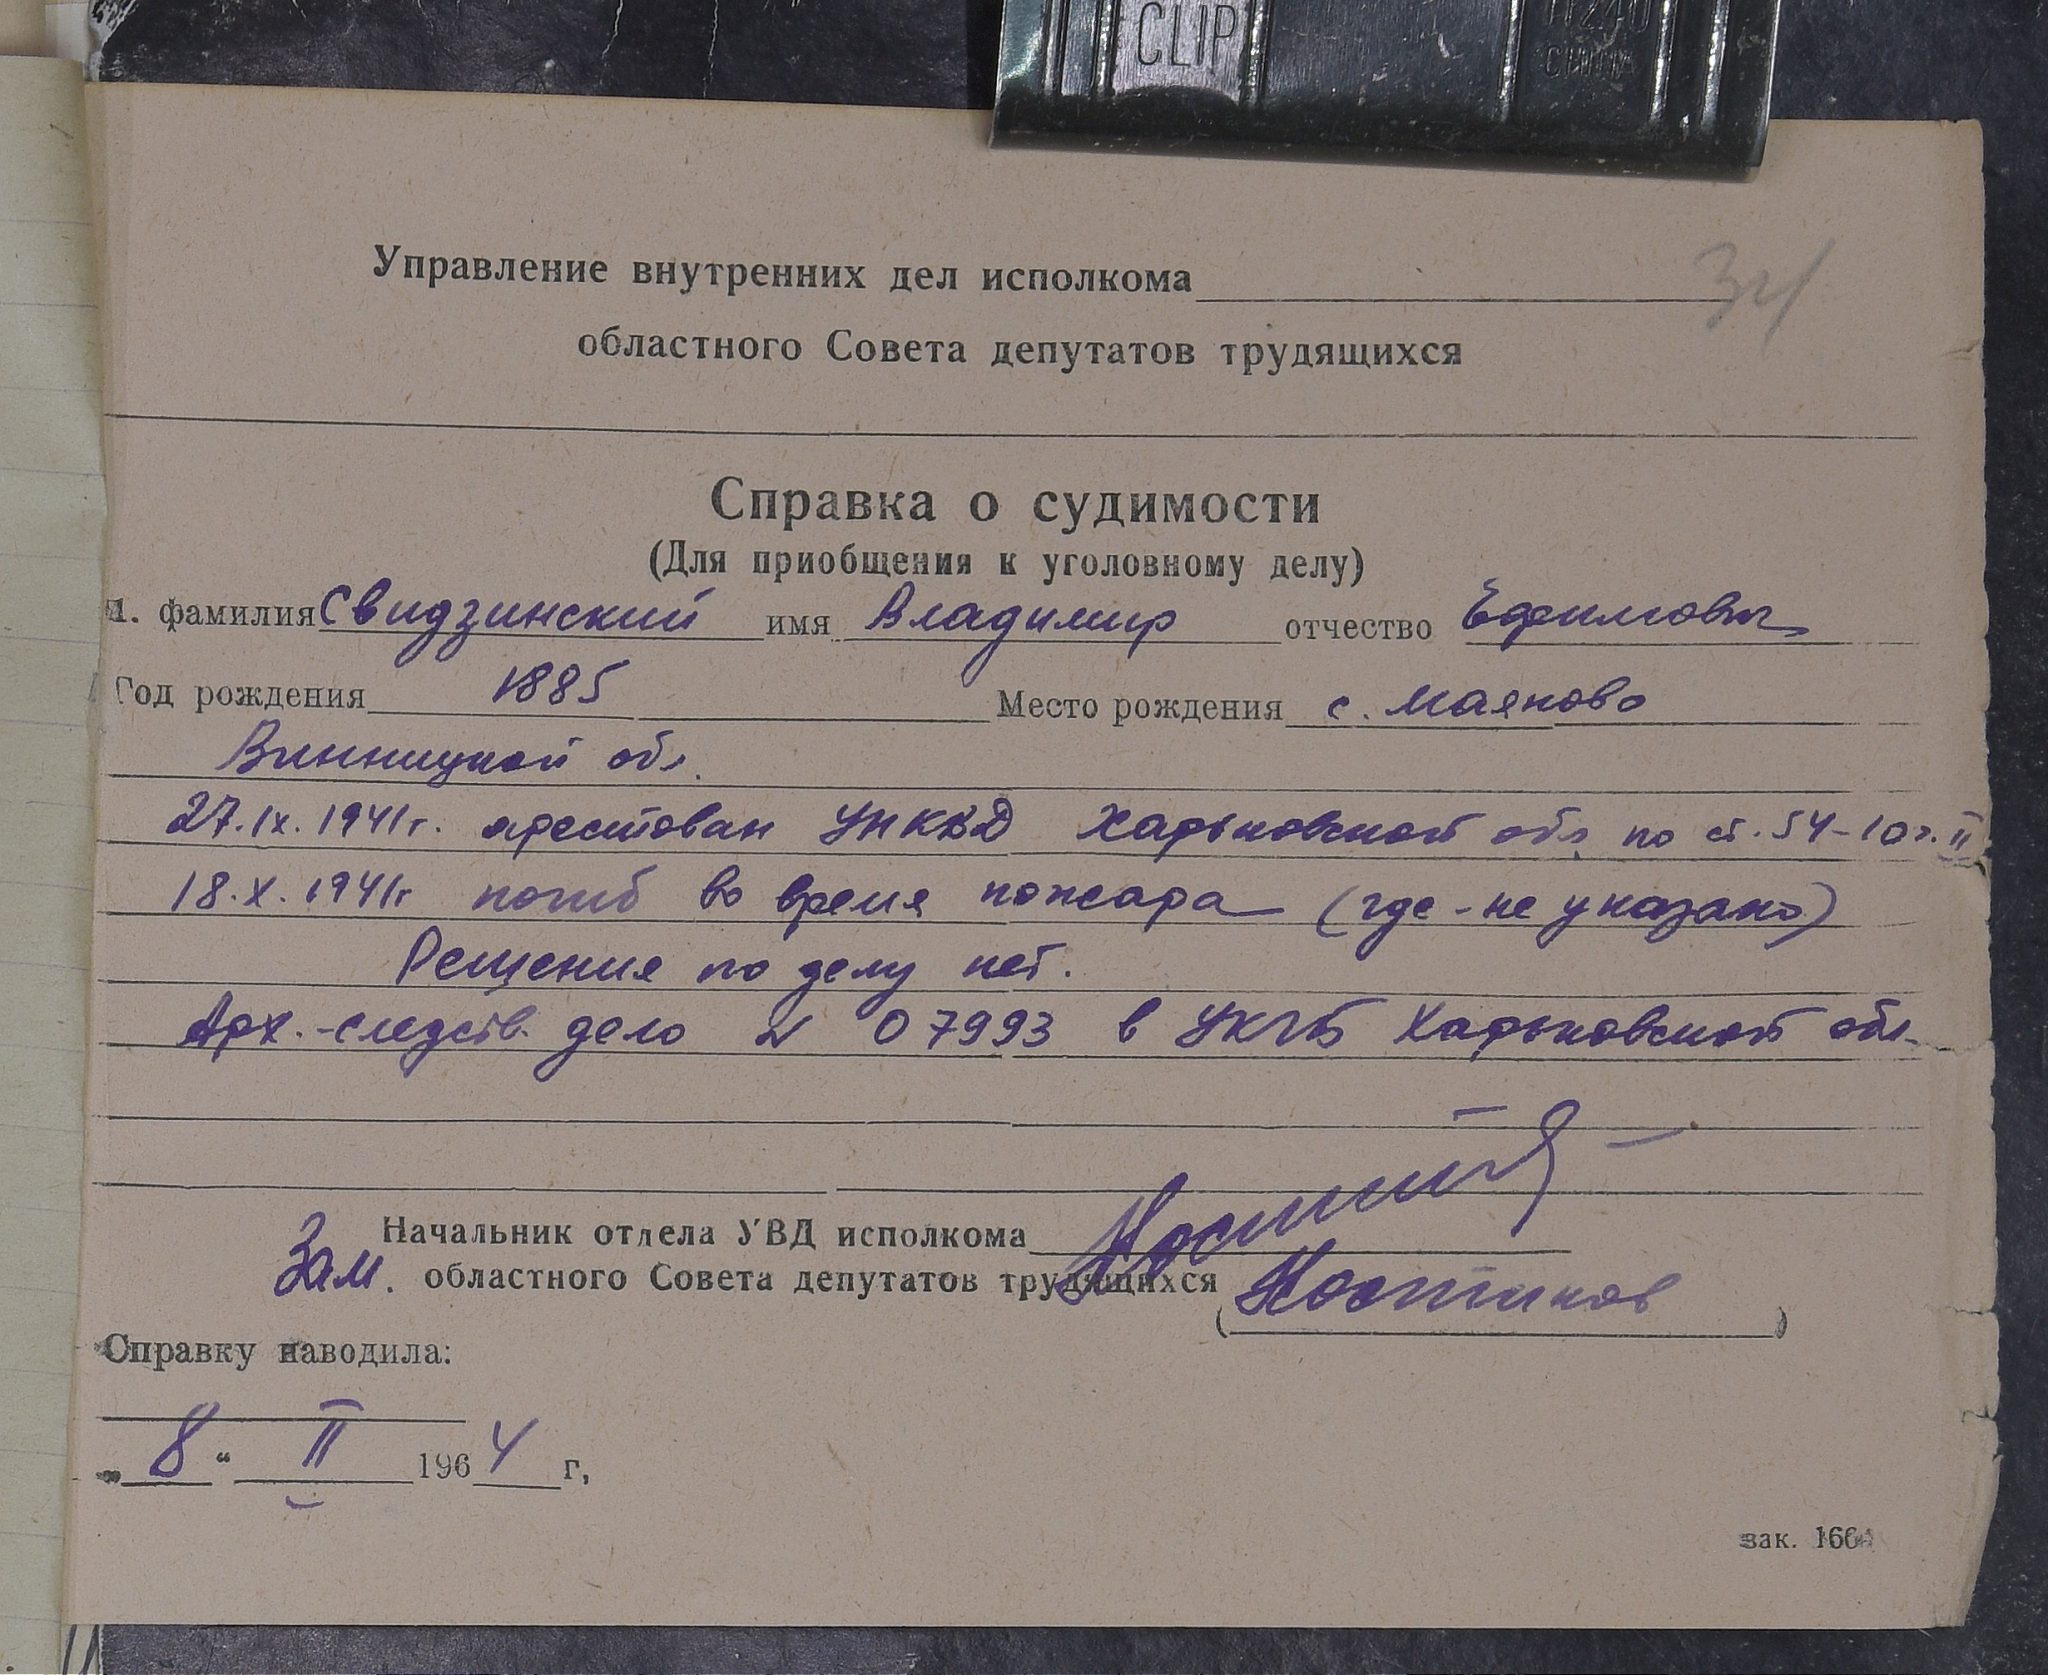 CLIP
CHINA
34
Управление внутренних дел исполкома
областного Совета депутатов трудящихся
Справка о судимости
(Для приобщения к уголовному делу)
1. фамилия Свидзинский имя Владимир отчество Ефимович
Год рождения 1885 Место рождения с. Маяново
Винницкой обл.
27.IX.1941г. арестован УНКВД Харьковской обл. по ст. 54-10 ч. II
18.X.1941г погиб во время пожара (где-не указано)
Решения по делу нет.
Арх.-следств. дело № 07993 в УКГБ Харьковской обл.
Начальник отдела УВД исполкома
Зам. областного Совета депутатов трудящихся
(Костиков)
Справку наводила:
„8“ II 1964 г,
зак. 166